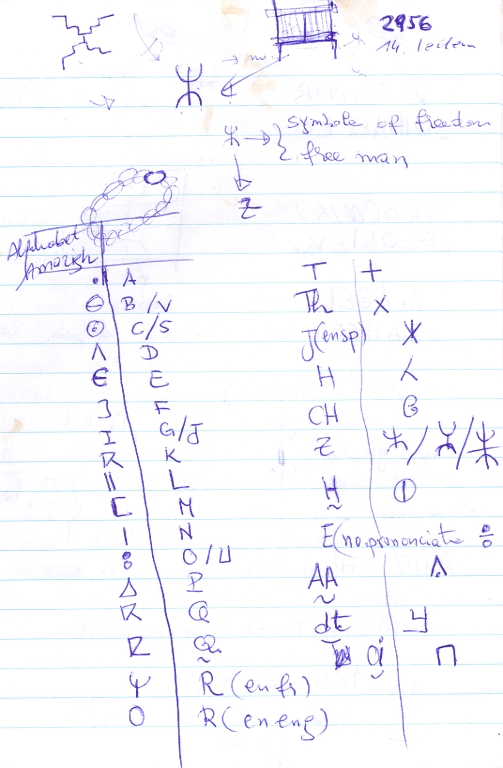 2956
14. 
→ no
ⵣ → symbole of freedom
free man
Z
Alphabet
Amazigh
• A
ⴱ B/V
ⵙ C/S
ⴷ D
Є E
Ʒ F
I G/J
K
ⵍ L
ⵎ M
ⵏ N
O/U
Δ P
Q
Q
Ψ R (en fr)
O R (en eng)
T +
Th X
J(ensp) ⵥ
H ⵃ
CH
Z ⵣ / ⵣ / ⵣ
H ⵀ
E(no.prononciate
AA
dt
q ⊓